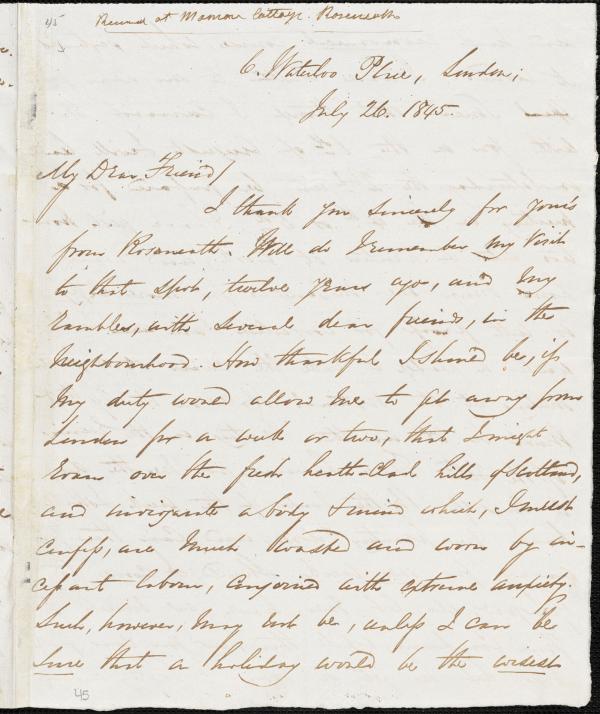 45
Received at Manson Cottage. Roseneath
6. Waterloo Place, London;
July 26. 1845.
My Dear Friend!
I thank you sincerely for your's
from Roseneath. Well do I remember my visit
to that spot, twelve years ago, and my
rambles, with several dear friends, in the
neighbourhood. How thankful I should be, if
my duty would allow me to get away from
London for a week or two, that I might
roam over the fresh heath-clad hills of Scotland,
and invigorate a body & mind which, I must
confess, are much wasted and worn by in-
cessant labour, conjoined with extreme anxiety.
Such, however, may not be, unless I can be
sure that a holiday would be the wisest
45